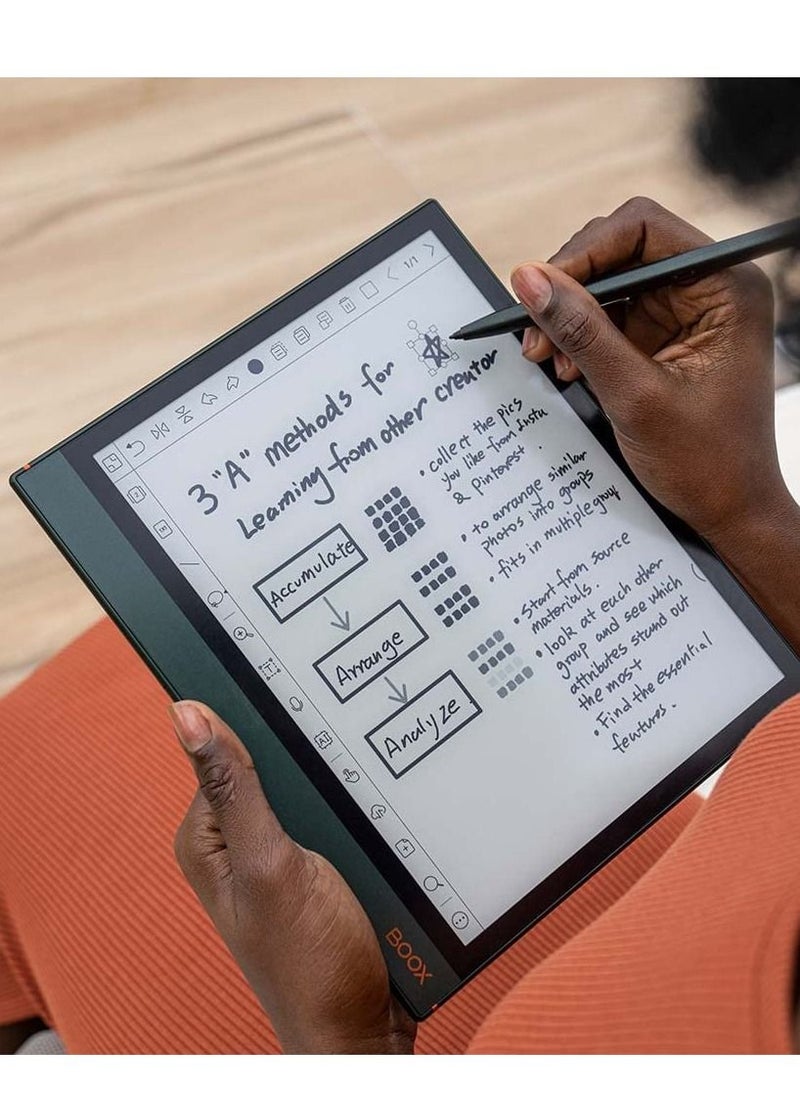 1/1
3 "A" methods for
Learning from other creator
Accumulate
• collect the pics
you like from Insta
& Pinterest.
Arrange
• to arrange similar
photos into groups
• fits in multiple group
Analyze
• Start from source
materials.
• look at each other
group and see which
attributes stand out
the most
• Find the essential
features.
AI
BOOX